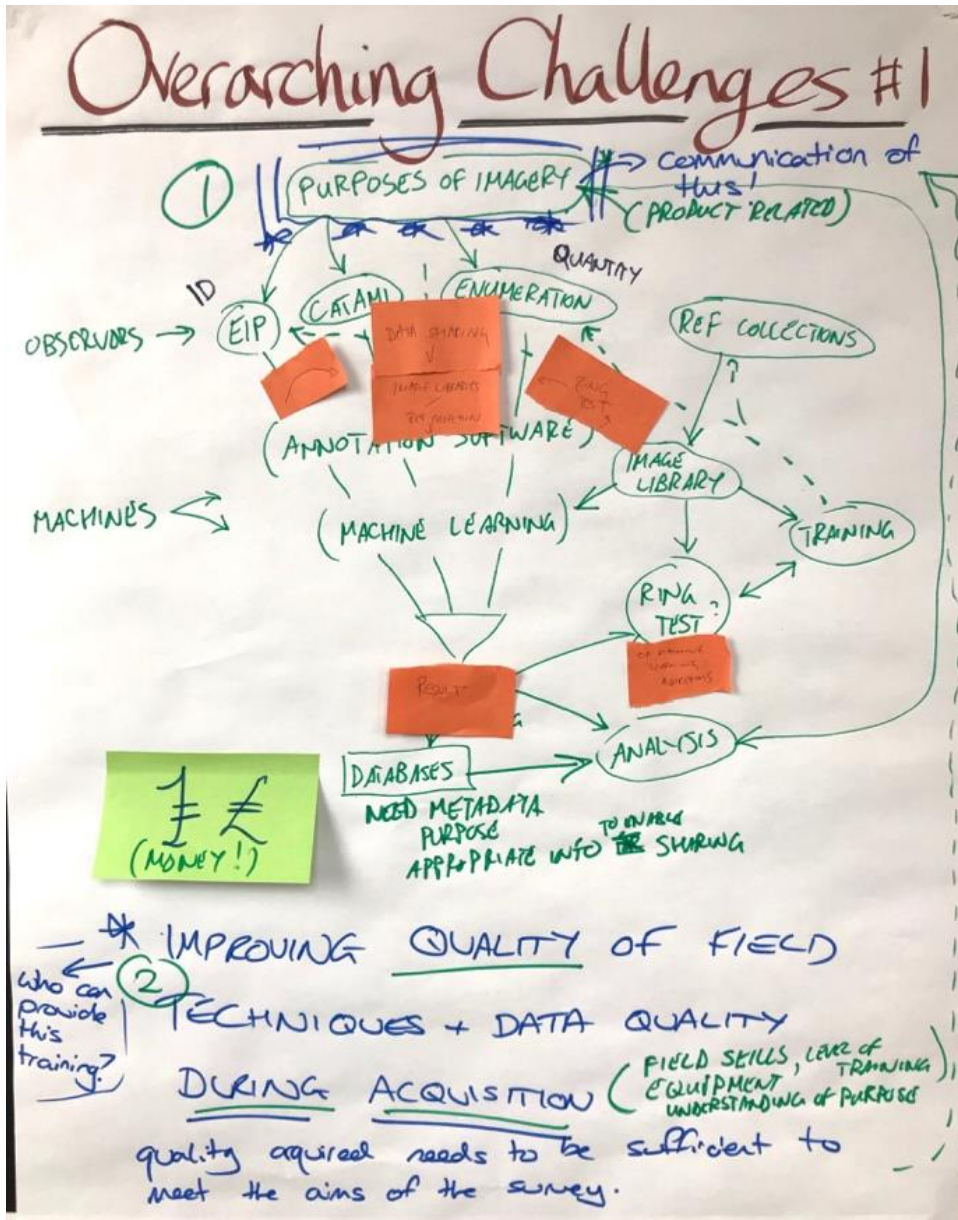 Overarching Challenges #1
1
PURPOSES OF IMAGERY
* → communication of
this!
(PRODUCT RELATED)
ID
QUANTITY
OBSERVORS →
EIP
CATAMI
ENUMERATION
REF COLLECTIONS
DATA SHARING
IMAGE LIBRARIES
RING
TEST
(ANNOTATION SOFTWARE)
IMAGE
LIBRARY
MACHINES
(MACHINE LEARNING)
TRAINING
RING ?
TEST
OF MACHINE
LEARNING
RESULT
ANALYSIS
DATABASES
NEED METADATA
PURPOSE
APPROPRIATE INFO TO ENABLE SHARING
£
(MONEY!)
* IMPROVING QUALITY OF FIELD
2
TECHNIQUES + DATA QUALITY
DURING ACQUISITION
who can
provide
this
training?
(FIELD SKILLS, LEVEL OF TRAINING)
EQUIPMENT
UNDERSTANDING OF PURPOSE
quality acquired needs to be sufficient to
meet the aims of the survey.